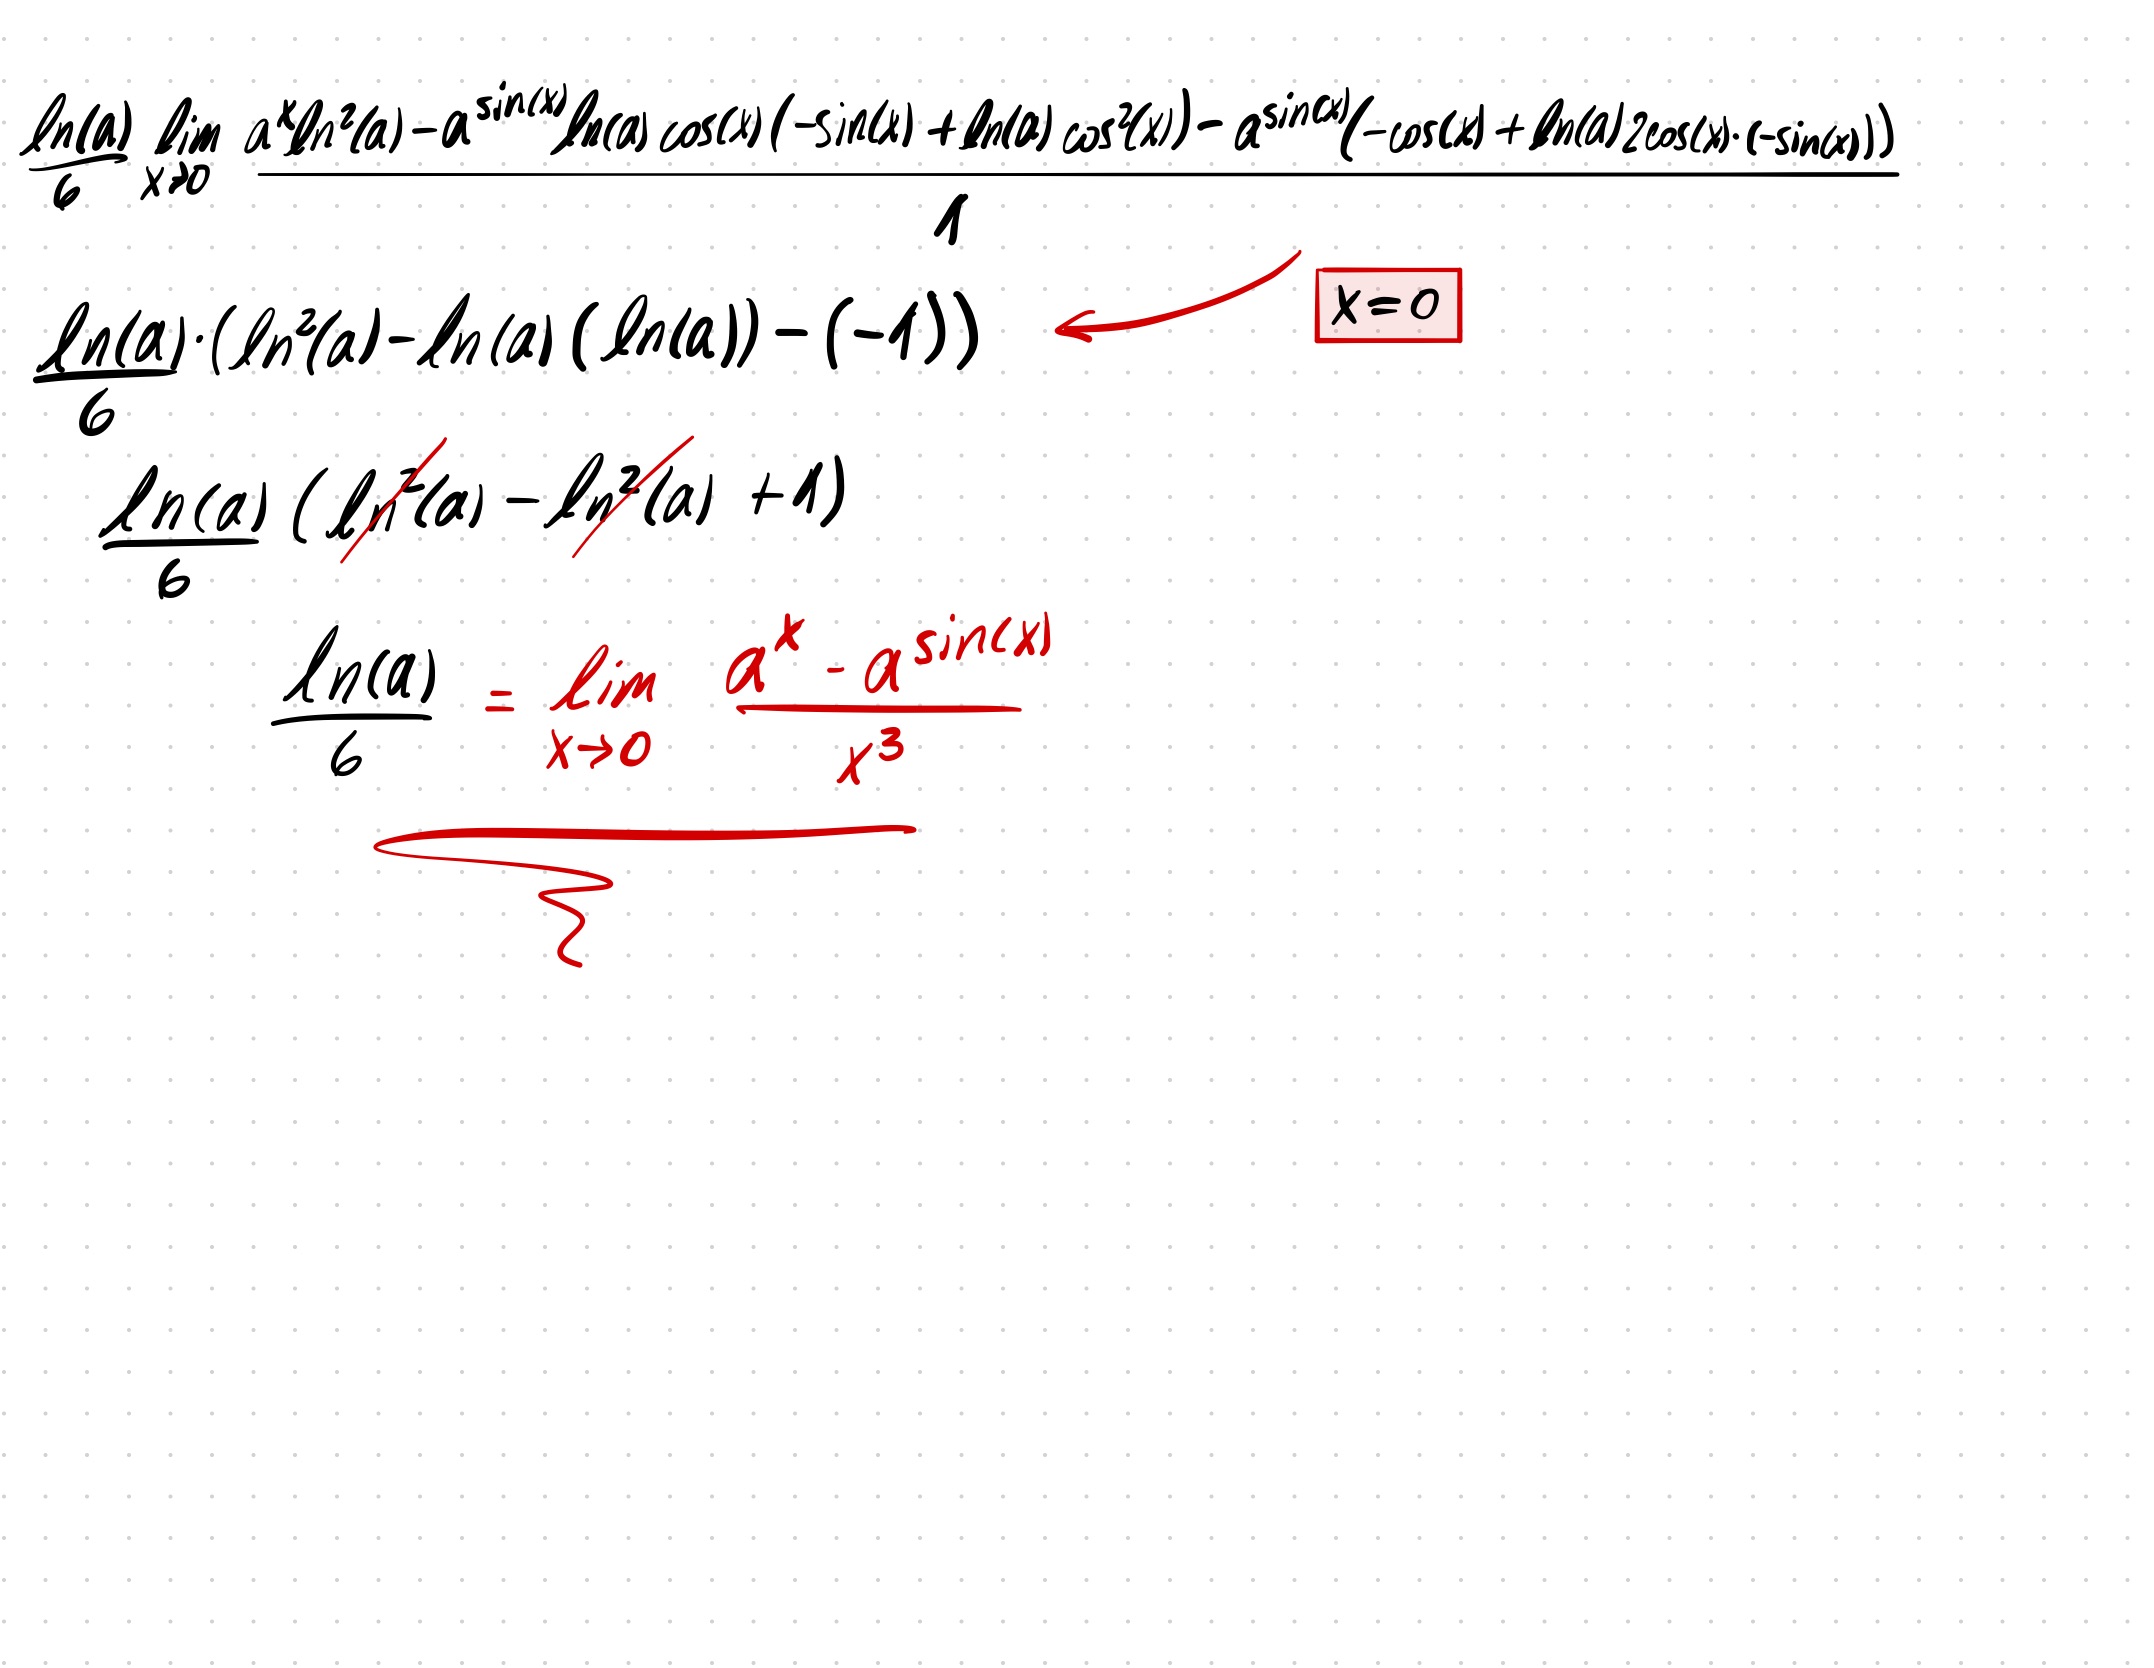 ln(a)/6 lim x→0 a^x ln²(a) - a^sin(x) ln(a) cos(x) (-sin(x) + ln(a) cos²(x)) - a^sin(x) (-cos(x) + ln(a) 2cos(x)·(-sin(x)))
1
x=0
ln(a)/6 · (ln²(a) - ln(a) (ln(a)) - (-1))
ln(a)/6 (ln²(a) - ln²(a) + 1)
ln(a)/6 = lim x→0 a^x - a^sin(x) / x³